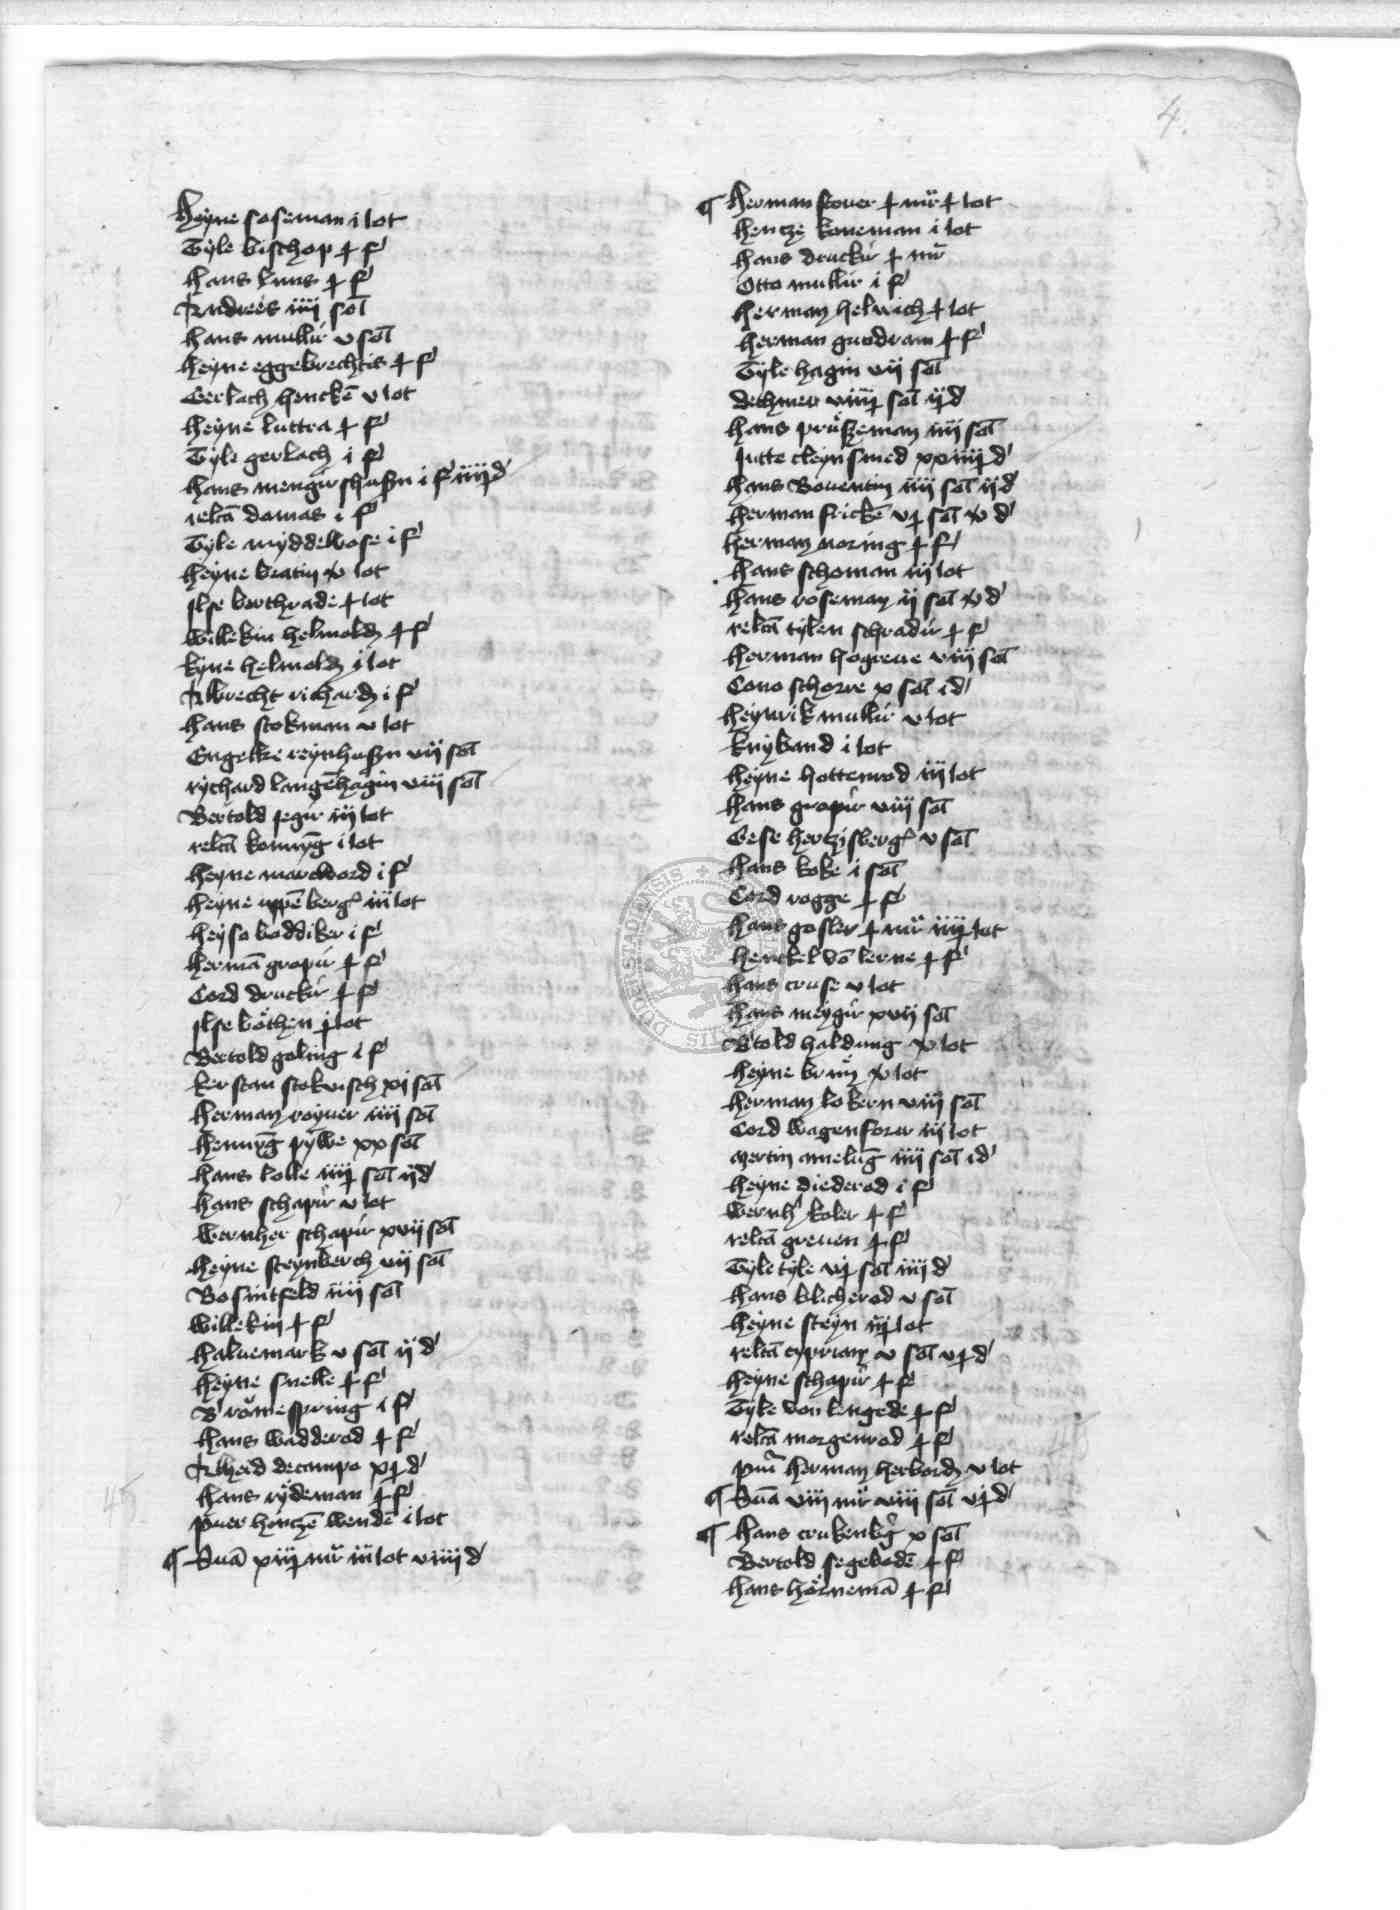 4.
Heyne soseman i lot
Tyle bischop ɟ f
hans luns ɟ f
Andrees iiii sol
hans mullir v sol
heyne eggebrechtis ɟ f
Gerlach hencken v lot
heyne luttra ɟ f
Tyle gerlach i f
hans mengirshusen i f iiij d
relca damas i f
Tyle myddelbose i f
heyne bratin v lot
ilse berthrade ɟ lot
Willekin helmoldi ɟ f
kyne helmoldi i lot
Albrecht richardi i f
hans stokman v lot
Engelke reynhusen vii sol
rychard langehagin viii sol
Bertold iegir iii lot
relca konnyg i lot
heyne marcword i f
heyne uppe berge iii lot
heyso boddiker i f
herma gropir ɟ f
Cord druckir ɟ f
ilse böthen i lot
Bertold goling i f
kerstan stokvisch xi sol
herman royner iiii sol
hennyg pywe xx sol
hans lolle iiij sol ij d
hans schapir v lot
Wernher schapir xvii sol
heyne steynberch vii sol
Bosintfeld iiii sol
Willekin ɟ f
halvemark v sol ij d
heyne snelle ɟ f
B römespring i f
hans wadderod ɟ f
Alheid decampo xj d
hans rydeman ɟ f
puer hinczen wenden i lot
¶ Sua xiij mr iii lot viiii d
¶ Herman stover ɟ mr ɟ lot
hencze koneman i lot
hans druckir ɟ mr
Otto mullir i f
herman helwich ɟ lot
herman gundram ɟ f
Tyle hagin vii sol
dethmer viiij sol ij d
hans prüszeman iiii sol
Jutte cleynsmed xxiiij d
hans Boventin iiii sol ij d
herman fricken vj sol v d
herman noring ɟ f
hans schoman iii lot
hans roseman ii sol v d
relca tylen schradir ɟ f
herman hogreve viii sol
Cono schorre x sol i d
heynrik mullir v lot
knyband i lot
heyne hottenrod iii lot
hans gropir viii sol
Gese hertzisberge v sol
hans koke i sol
Cord rogge ɟ f
hans gosler ɟ mr iiij lot
henckel von lerne ɟ f
hans cruse v lot
hans meygir xvii sol
Btold haldung v lot
heyne brun v lot
herman lokern viii sol
Cord wagenforer iii lot
mertin amelug iiii sol i d
heyne diederod i f
Wernh koler ɟ f
relca greven ɟ f
Tyle tyle vj sol iiii d
hans blicherod v sol
heyne steyn iij lot
relca cypriani v sol vj d
heyne schapir ɟ f
Tyle von lengede ɟ f
relca morgenrod ɟ f
pui herman herbordi v lot
¶ Sua viii mr viii sol vj d
¶ hans crukenbg x sol
Bertold segeboden ɟ f
hans hörnema ɟ f